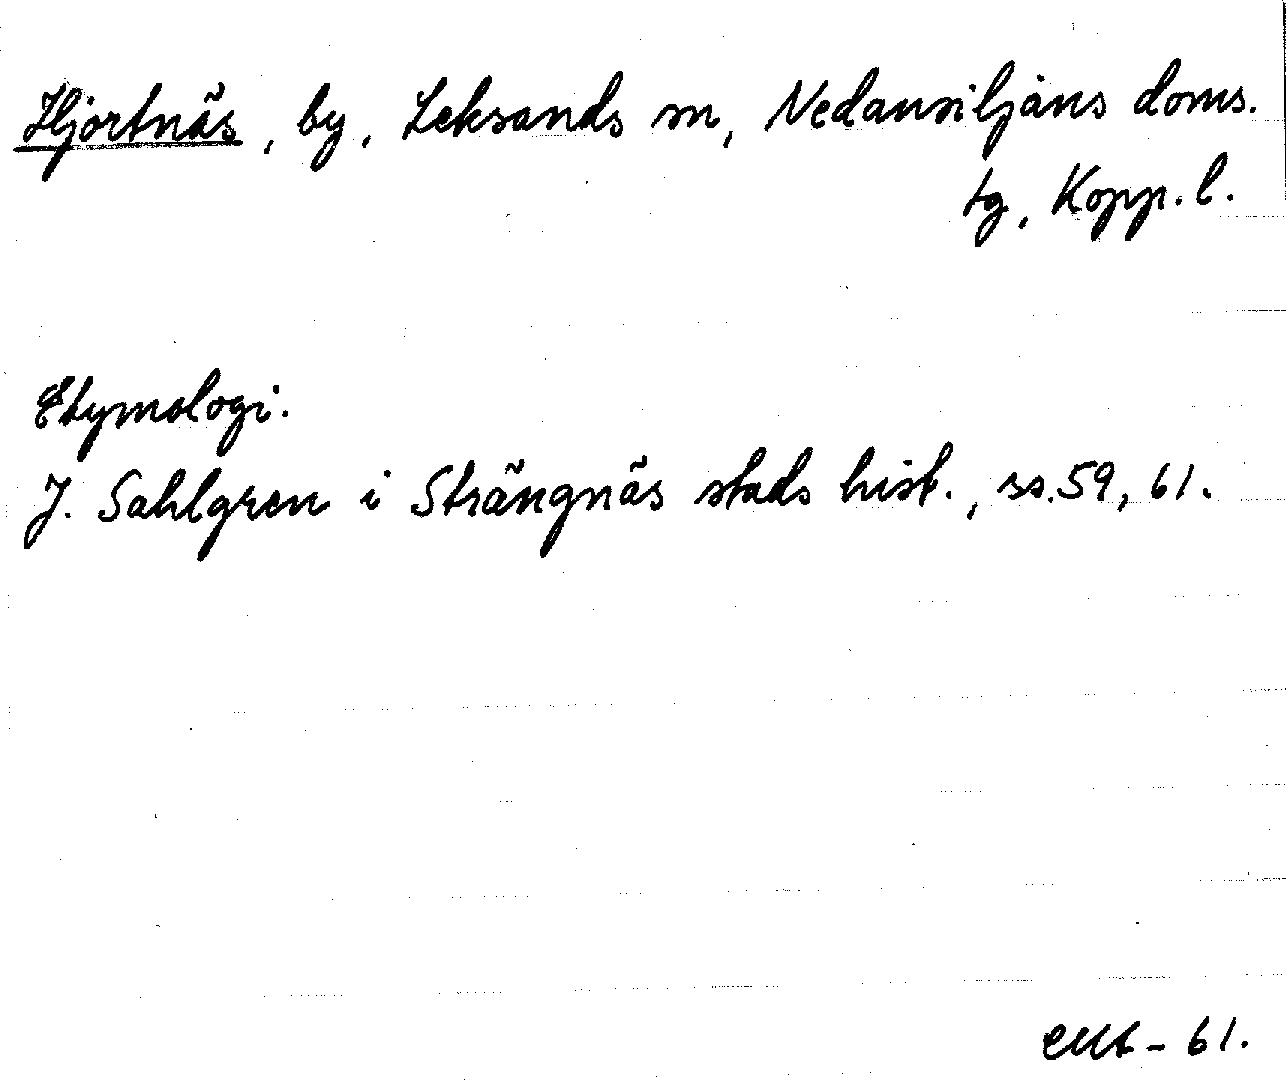 Hjortnäs, by, Leksands sn, Nedansiljans doms.
tg, Kopp. l.
Etymologi.
J. Sahlgren i Strängnäs stads hist., ss. 59, 61.
- 61.